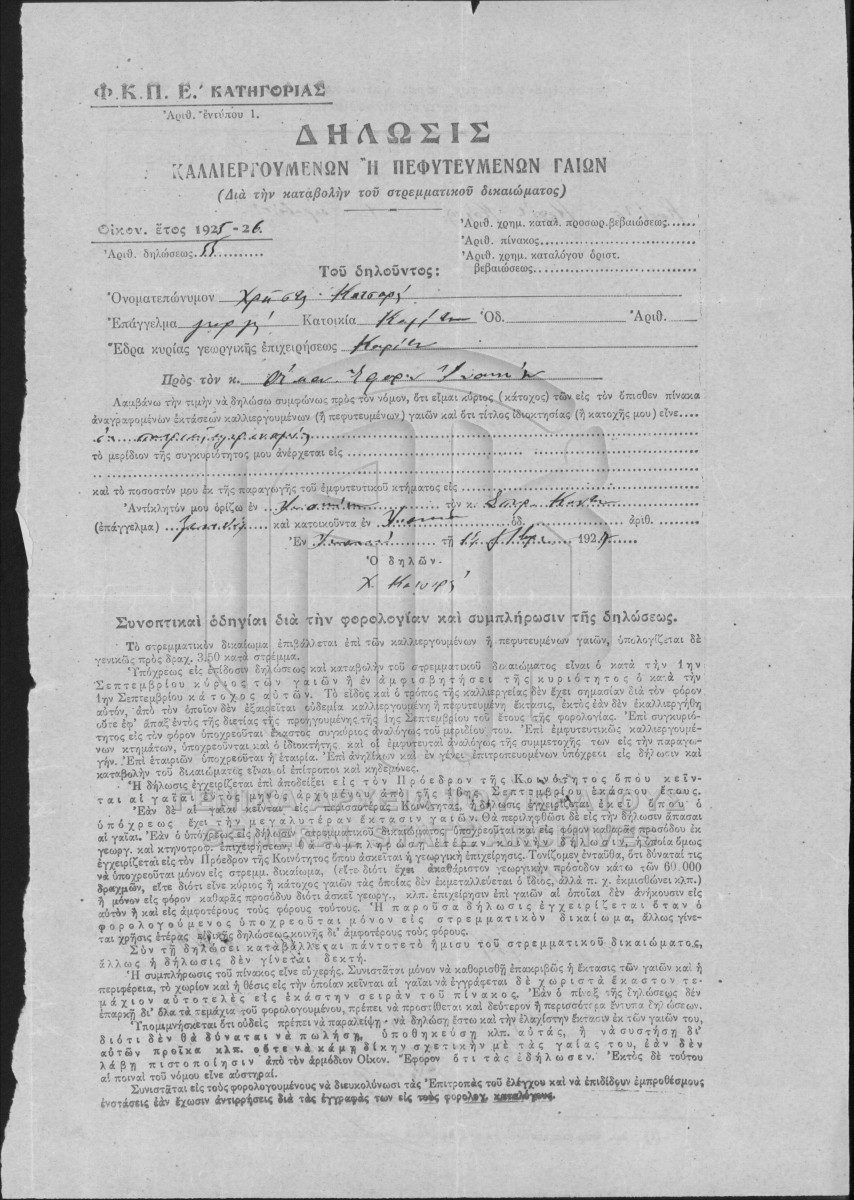 Φ.Κ.Π. Ε.' ΚΑΤΗΓΟΡΙΑΣ
Ἀριθ. ἐντύπου 1.
ΔΗΛΩΣΙΣ
ΚΑΛΛΙΕΡΓΟΥΜΕΝΩΝ Ἢ ΠΕΦΥΤΕΥΜΕΝΩΝ ΓΑΙΩΝ
(Διὰ τὴν καταβολὴν τοῦ στρεμματικοῦ δικαιώματος)
Οἰκον. ἔτος 1925-26
Ἀριθ. δηλώσεως 55
Ἀριθ. χρημ. καταλ. προσωρ. βεβαιώσεως
Ἀριθ. πίνακος
Ἀριθ. χρημ. καταλόγου ὁριστ.
βεβαιώσεως
Τοῦ δηλοῦντος:
Ὀνοματεπώνυμον
Ἐπάγγελμα Κατοικία Ὁδ. Ἀριθ.
Ἕδρα κυρίας γεωργικῆς ἐπιχειρήσεως
Πρὸς τὸν κ.
Λαμβάνω τὴν τιμὴν νὰ δηλώσω συμφώνως πρὸς τὸν νόμον, ὅτι εἶμαι κύριος (κάτοχος) τῶν εἰς τὸν ὄπισθεν πίνακα
ἀναγραφομένων ἐκτάσεων καλλιεργουμένων (ἢ πεφυτευμένων) γαιῶν καὶ ὅτι τίτλος ἰδιοκτησίας (ἢ κατοχῆς μου) εἶνε
τὸ μερίδιον τῆς συγκυριότητος μου ἀνέρχεται εἰς
καὶ τὸ ποσοστόν μου ἐκ τῆς παραγωγῆς τοῦ ἐμφυτευτικοῦ κτήματος εἰς
Ἀντίκλητόν μου ὁρίζω ἐν τὸν κ.
(ἐπάγγελμα) καὶ κατοικοῦντα ἐν ὁδ. ἀριθ.
Ἐν τῇ 192
Ὁ δηλῶν.
Συνοπτικαὶ ὁδηγίαι διὰ τὴν φορολογίαν καὶ συμπλήρωσιν τῆς δηλώσεως.
Τὸ στρεμματικὸν δικαίωμα ἐπιβάλλεται ἐπὶ τῶν καλλιεργουμένων ἢ πεφυτευμένων γαιῶν, ὑπολογίζεται δὲ
γενικῶς πρὸς δραχ. 3.50 κατὰ στρέμμα.
Ὑπόχρεως εἰς ἐπίδοσιν δηλώσεως καὶ καταβολὴν τοῦ στρεμματικοῦ δικαιώματος εἶναι ὁ κατὰ τὴν 1ην
Σεπτεμβρίου κύριος τῶν γαιῶν ἢ ἐν ἀμφισβητήσει τῆς κυριότητος ὁ κατὰ τὴν
1ην Σεπτεμβρίου κάτοχος αὐτῶν. Τὸ εἶδος καὶ ὁ τρόπος τῆς καλλιεργείας δὲν ἔχει σημασίαν διὰ τὸν φόρον
αὐτόν, ἀπὸ τὸν ὁποῖον δὲν ἐξαιρεῖται οὐδεμία καλλιεργουμένη ἢ πεφυτευμένη ἔκτασις, ἐκτὸς ἐὰν δὲν ἐκαλλιεργήθη
οὔτε ἐφ' ἅπαξ ἐντὸς τῆς διετίας τῆς προηγουμένης τῆς 1ης Σεπτεμβρίου τοῦ ἔτους τῆς φορολογίας. Ἐπὶ συγκυριό-
τητος εἰς τὸν φόρον ὑποχρεοῦται ἕκαστος συγκύριος ἀναλόγως τοῦ μεριδίου του. Ἐπὶ ἐμφυτευτικῶς καλλιεργουμέ-
νων κτημάτων, ὑποχρεοῦνται καὶ ὁ ἰδιοκτήτης καὶ οἱ ἐμφυτευταὶ ἀναλόγως τῆς συμμετοχῆς των εἰς τὴν παραγω-
γήν. Ἐπὶ ἑταιριῶν ὑποχρεοῦται ἡ ἑταιρία. Ἐπὶ ἀνηλίκων καὶ ἐν γένει ἐπιτροπευομένων ὑπόχρεοι εἰς δήλωσιν καὶ
καταβολὴν τοῦ δικαιώματος εἶναι οἱ ἐπίτροποι καὶ κηδεμόνες.
Ἡ δήλωσις ἐγχειρίζεται ἐπὶ ἀποδείξει εἰς τὸν Πρόεδρον τῆς Κοινότητος ὅπου κεῖν-
ται αἱ γαῖαι ἐντὸς μηνὸς ἀρχομένου ἀπὸ τῆς 16ης Σεπτεμβρίου ἑκάστου ἔτους.
Ἐὰν δὲ αἱ γαῖαι κεῖνται εἰς περισσοτέρας Κοινότητας, ἡ δήλωσις ἐγχειρίζεται ἐκεῖ ὅπου ὁ
ὑπόχρεως ἔχει τὴν μεγαλυτέραν ἔκτασιν γαιῶν. Θὰ περιληφθῶσι δὲ εἰς τὴν δήλωσιν ἅπασαι
αἱ γαῖαι. Ἐὰν ὁ ὑπόχρεως εἰς δήλωσιν στρεμματικοῦ δικαιώματος, ὑποχρεοῦται καὶ εἰς φόρον καθαρᾶς προσόδου ἐκ
γεωργ. καὶ κτηνοτροφ. ἐπιχειρήσεων, θὰ συμπληρώσῃ ἑτέραν κοινὴν δήλωσιν, ἡ ὁποία ὅμως
ἐγχειρίζεται εἰς τὸν Πρόεδρον τῆς Κοινότητος ὅπου ἀσκεῖται ἡ γεωργικὴ ἐπιχείρησις. Τονίζομεν ἐνταῦθα, ὅτι δύναταί τις
νὰ ὑποχρεοῦται μόνον εἰς στρεμμ. δικαίωμα, (εἴτε διότι ἔχει ἀκαθάριστον γεωργικὴν πρόσοδον κάτω τῶν 60.000
δραχμῶν, εἴτε διότι εἶνε κύριος ἢ κάτοχος γαιῶν τὰς ὁποίας δὲν ἐκμεταλλεύεται ὁ ἴδιος, ἀλλὰ π. χ. ἐκμισθώνει κλπ.)
ἢ μόνον εἰς φόρον καθαρᾶς προσόδου διότι ἀσκεῖ γεωργ., κλπ. ἐπιχείρησιν ἐπὶ γαιῶν αἱ ὁποῖαι δὲν ἀνήκουσιν εἰς
αὐτὸν ἢ καὶ εἰς ἀμφοτέρους τοὺς φόρους τούτους. Ἡ παροῦσα δήλωσις ἐγχειρίζεται ὅταν ὁ
φορολογούμενος ὑποχρεοῦται μόνον εἰς στρεμματικὸν δικαίωμα, ἄλλως γίνε-
ται χρῆσις ἑτέρας εἰδικῆς δηλώσεως κοινῆς δι' ἀμφοτέρους τοὺς φόρους.
Σὺν τῇ δηλώσει καταβάλλεται πάντοτε τὸ ἥμισυ τοῦ στρεμματικοῦ δικαιώματος,
ἄλλως ἡ δήλωσις δὲν γίνεται δεκτή.
Ἡ συμπλήρωσις τοῦ πίνακος εἶνε εὐχερής. Συνιστᾶται μόνον νὰ καθορισθῇ ἐπακριβῶς ἡ ἔκτασις τῶν γαιῶν καὶ ἡ
περιφέρεια, τὸ χωρίον καὶ ἡ θέσις εἰς τὴν ὁποίαν κεῖνται αἱ γαῖαι νὰ ἐγγράφεται δὲ χωριστὰ ἕκαστον τε-
μάχιον αὐτοτελὲς εἰς ἑκάστην σειρὰν τοῦ πίνακος. Ἐὰν ὁ πίναξ τῆς δηλώσεως δὲν
ἐπαρκῇ δι' ὅλα τὰ τεμάχια τοῦ φορολογουμένου, πρέπει νὰ προστίθεται καὶ δεύτερον ἢ περισσότερα ἔντυπα δηλώσεων.
Ὑπομιμνήσκεται ὅτι οὐδεὶς πρέπει νὰ παραλείψῃ νὰ δηλώσῃ ἔστω καὶ τὴν ἐλαχίστην ἔκτασιν ἐκ τῶν γαιῶν του,
διότι δὲν θὰ δύναται νὰ πωλήσῃ, ὑποθηκεύσῃ κλπ. αὐτάς, ἢ νὰ συστήσῃ δι'
αὐτῶν προῖκα κλπ. οὔτε νὰ κάμῃ δίκην σχετικὴν μὲ τὰς γαίας του, ἐὰν δὲν
λάβῃ πιστοποίησιν ἀπὸ τὸν ἁρμόδιον Οἰκον. Ἔφορον ὅτι τὰς ἐδήλωσεν. Ἐκτὸς δὲ τούτου
αἱ ποιναὶ τοῦ νόμου εἶνε αὐστηραί.
Συνιστᾶται εἰς τοὺς φορολογουμένους νὰ διευκολύνωσι τὰς Ἐπιτροπὰς τοῦ ἐλέγχου καὶ νὰ ἐπιδίδουν ἐμπροθέσμους
ἐνστάσεις ἐὰν ἔχωσιν ἀντιρρήσεις διὰ τὰς ἐγγραφάς των εἰς τοὺς φορολογ. καταλόγους.